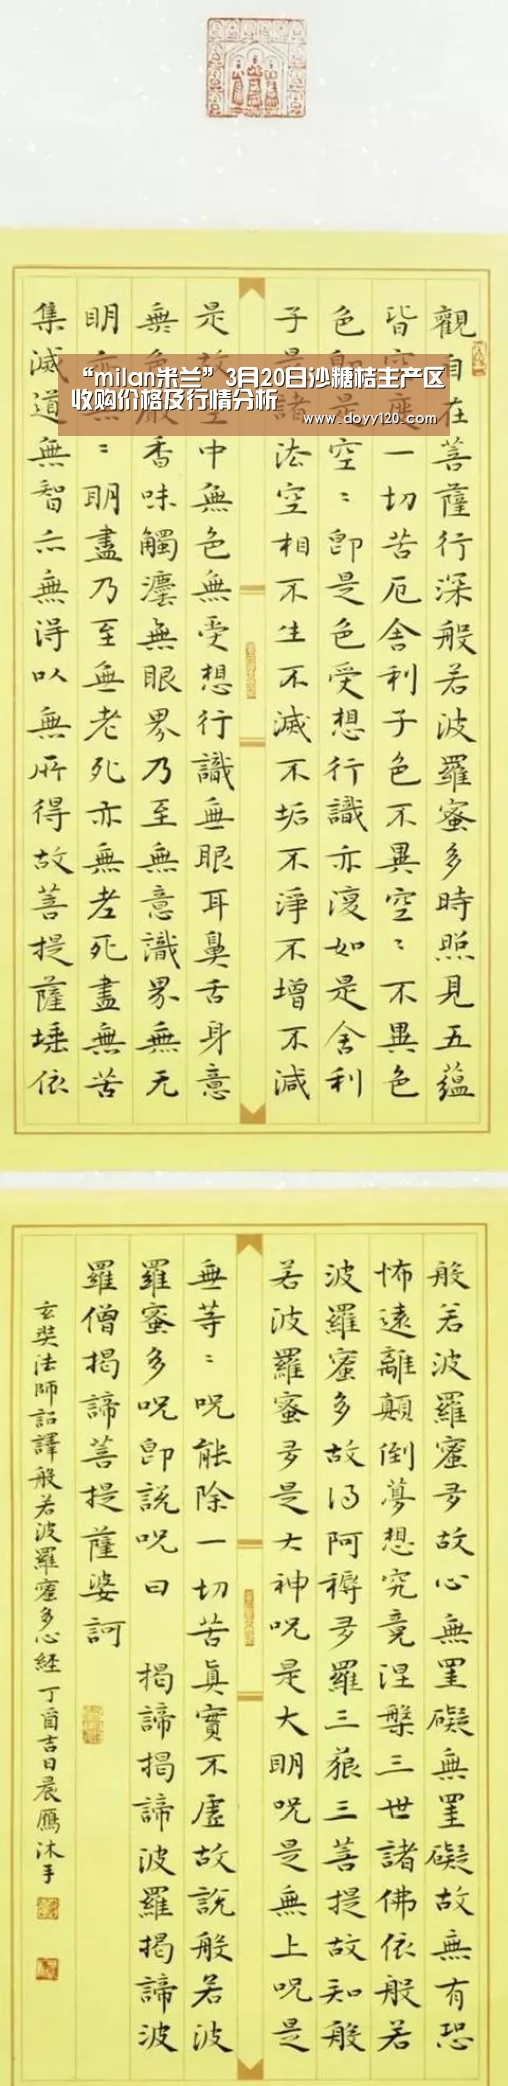 “milan米兰”3月20日沙糖桔主产区
收购价格及行情分析
www.doyy120.com
觀自在菩薩行深般若波羅蜜多時照見五蘊
皆空度一切苦厄舍利子色不異空〻不異色
色即是空〻即是色受想行識亦復如是舍利
子是諸法空相不生不滅不垢不淨不增不減
是故空中無色無受想行識無眼耳鼻舌身意
無色聲香味觸塵無眼界乃至無意識界無无
明亦無〻明盡乃至無老死亦無老死盡無苦
集滅道無智亦無得以無所得故菩提薩埵依
般若波羅蜜多故心無罣礙無罣礙故無有恐
怖遠離顛倒夢想究竟涅槃三世諸佛依般若
波羅蜜多故得阿耨多羅三藐三菩提故知般
若波羅蜜多是大神呪是大明呪是無上呪是
無等〻呪能除一切苦眞實不虛故說般若波
羅蜜多呪即說呪曰 揭諦揭諦波羅揭諦波
羅僧揭諦菩提薩婆訶
玄奘法師詔譯般若波羅蜜多心經 丁酉吉日晨鷹沐手